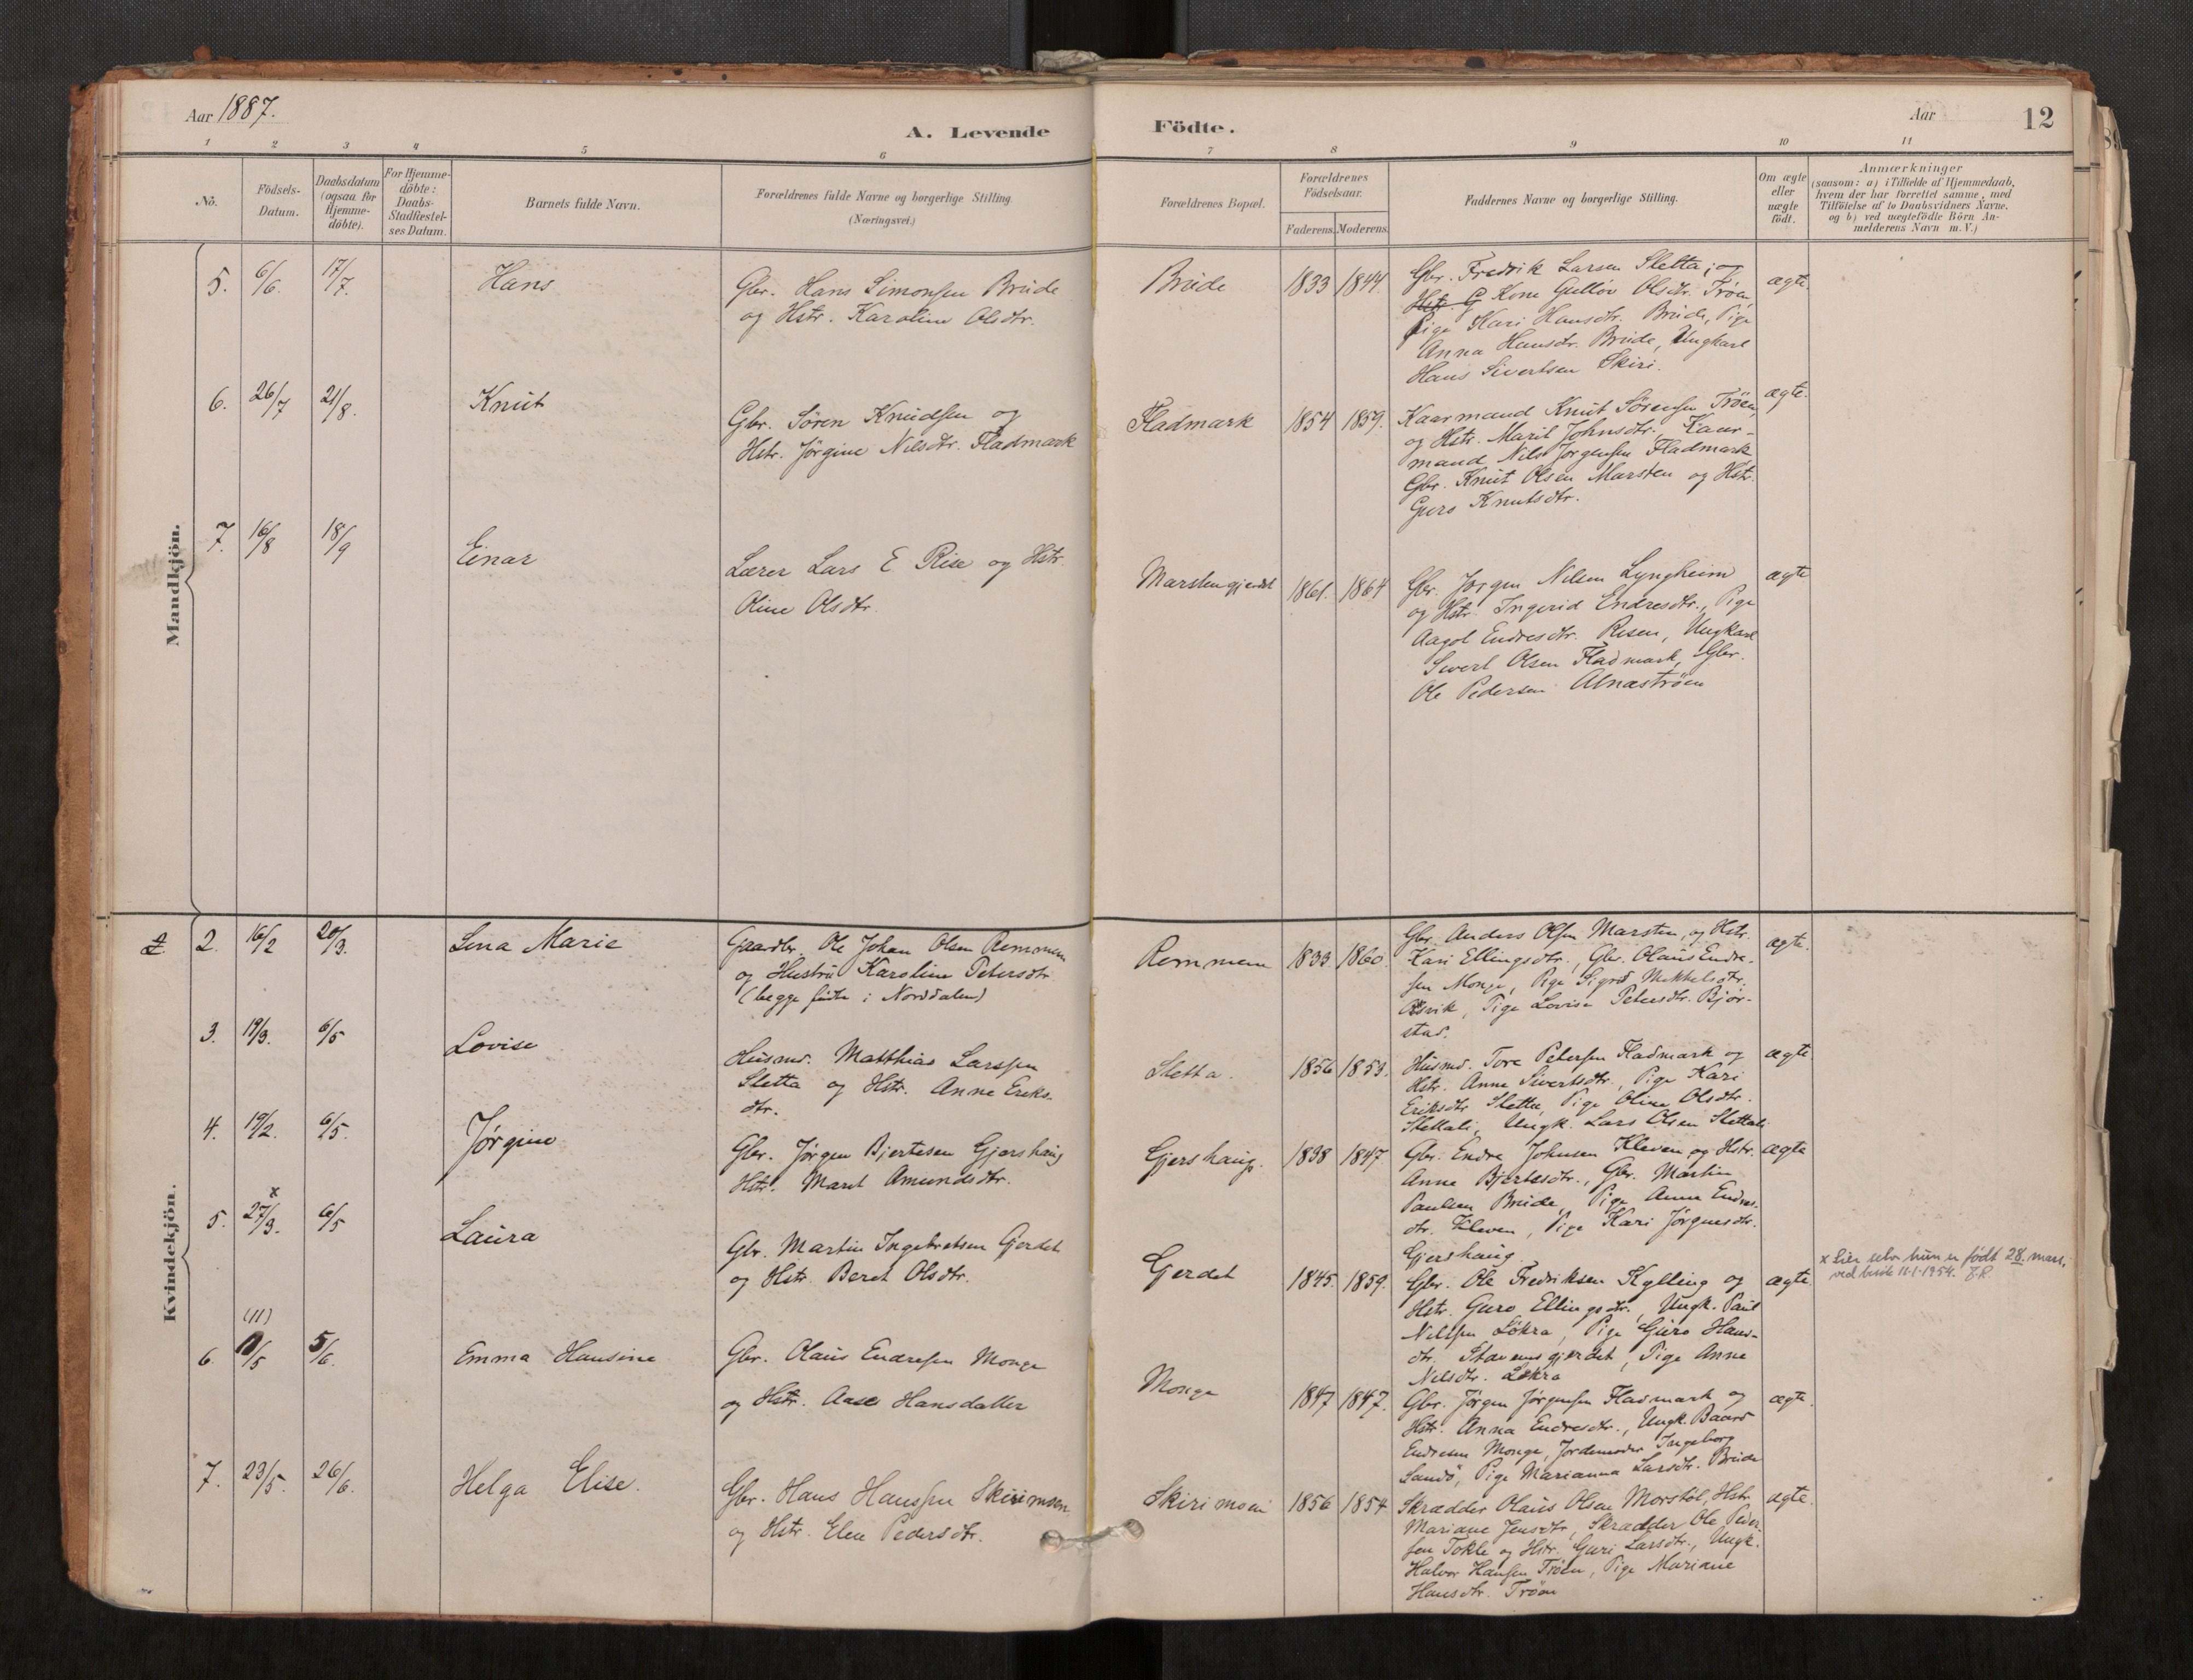 Aar 1887.
A. Levende
Födte.
Aar
12
1 2 3 4 5 6 7 8 9 10 11
Nö.
Födsels-
Datum.
Daabsdatum
(ogsaa for
Hjemme-
döbte).
For Hjemme-
döbte:
Daabs-
Stadfæstel-
ses Datum.
Barnets fulde Navn.
Forældrenes fulde Navne og borgerlige Stilling.
(Næringsvei.)
Forældrenes Bopæl.
Forældrenes
Födselsaar.
Faderens. Moderens.
Faddernes Navne og borgerlige Stilling.
Om ægte
eller
uægte
födt.
Anmærkninger
(saasom: a) i Tilfælde af Hjemmedaab,
hvem der har forrettet samme, med
Tilföielse af to Daabsvidners Navne.
og b) ved uægtefödte Börn An-
melderens Navn m.V.)
Mandkjön.
5. 6/6. 17/7. Hans
Gbr. Hans Simonsen Brude
og Hstr. Karoline Olsdtr.
Brude 1833 1844.
Gbr. Fredrik Larsen Sletta; og
Hstr. G Kone Gullöv Olsdtr. Tröen,
Pige Kari Hansdtr. Brude, Pige
Anna Hansdtr. Brude, Ungkarl
Hans Sivertsen Skiri.
ægte.
6. 26/7 21/8. Knut
Gbr. Sören Knudsen og
Hstr. Jörgine Nilsdtr. Fladmark
Fladmark 1854 1859.
Kaarmand Knut Sörensen Tröen,
og Hstr. Marit Johnsdtr., Kaar-
mand Nils Jörgensen Fladmark
Gbr. Knut Olsen Marsten og Hstr.
Guro Knutsdtr.
ægte.
7. 16/8 18/9 Einar
Lærer Lars E. Rise og Hstr.
Oline Olsdtr.
Marstengjerdet 1861. 1864
Gbr. Jörgen Nilsen Lyngheim
og Hstr. Ingerid Endresdtr., Pige
Aagot Endresdtr. Risen, Ungkarl
Sivert Olsen Fladmark, Gbr.
Ole Pedersen Alnæströen
ægte
Kvindekjön.
2. 16/2 20/3. Lina Marie
Gaardbr. Ole Johan Olsen Remmem
og Hustru Karoline Petersdtr.
(begge födte i Norddalen)
Remmem 1833. 1860.
Gbr. Anders Olsen Marsten, og Hstr.
Kari Ellingsdtr., Gbr. Olaus Endre-
sen Monge, Pige Sigrid Mikkelsdtr.
Pige Lovise Petersdtr. Björ-
stad.
ægte.
3. 19/3. 6/5 Lovise
Husmd. Matthias Larssen
Sletta og Hstr. Anne Eriks-
dtr.
Sletta. 1856 1853.
Husmd. Tore Petersen Fladmark og
Hstr. Anne Sivertsdtr., Pige Kari
Eriksdtr. Sletta, Pige Oline Olsdtr.
Slettali, Ungk. Lars Olsen Slettali
ægte
4. 19/2. 6/5. Jörgine
Gbr. Jörgen Bjertesen Gjershaug
Hstr. Marit Amundsdtr.
Gjershaug. 1838 1847
Gbr. Endre Johnsen Kleven og Hstr.
Anne Bjertesdtr., Gbr. Martin
Paulsen Brude, Pige Anne Endres-
dtr. Kleven, Pige Kari Jörgensdtr.
Gjershaug
ægte
5. 27/3. x 6/5 Laura
Gbr. Martin Ingebretsen Gjerdet
og Hstr. Beret Olsdtr.
Gerdet 1845. 1859.
Gbr. Ole Fredriksen Kylling og
Hstr. Guro Ellingsdtr., Ungk. Paul
Nilssen Lökra, Pige Guro Hans-
dtr. Stavemsgjerdet, Pige Anne
Nilsdtr. Lökra
ægte.
x Sier selv hun er født 28. mars.
ved besök 11-1-1954.
6. (11) 11/5 5/6. Emma Hansine
Gbr. Olaus Endresen Monge
og Hstr. Aase Hansdatter
Monge 1847 1847.
Gbr. Jörgen Jörgensen Fladmark og
Hstr. Anna Endresdtr., Ungk. Baard
Endresen Monge, Jordemoder Ingeborg
Sandö, Pige Marianna Larsdtr. Brude
ægte.
7. 23/5. 26/6. Helga Elise.
Gbr. Hans Hanssen Skirimoen
og Hstr. Elen Pedersdtr.
Skirimoen 1856 1854
Skrædder Olaus Olsen Morstöl, Hstr.
Mariane Jensdtr., Skrædder Ole Peder-
sen Tokle og Hstr. Guri Larsdtr., Ungk.
Halvor Hansen Tröen, Pige Mariane
Hansdtr. Tröen
ægte.